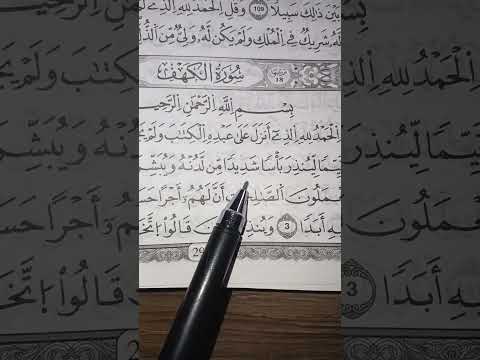 بَيْنَ ذَٰلِكَ سَبِيلًا 109 وَقُلِ اِلْحَمْدُ لِلهِ اِلذِے
لَّهُۥ شَرِيكٌ فِے اِلْمُلْكِ وَلَمْ يَكُن لَّهُۥ وَلِيٌّ مِّنَ اَلذُّلِّ
سُورَةُ الْكَهْفِ 18
بِسْمِ اللَّهِ الرَّحْمَٰنِ الرَّحِيمِ
اِلْحَمْدُ لِلهِ اِلذِےٓ أَنزَلَ عَلَىٰ عَبْدِهِ اِلْكِتَٰبَ وَلَمْ
قَيِّمًا لِّيُنذِرَ بَأْسًا شَدِيدًا مِّن لَّدُنْهُ وَيُبَشِّرَ
يَعْمَلُونَ اَلصَّٰلِحَٰتِ أَنَّ لَهُمُۥٓ أَجْرًا
فِيهِ أَبَدًا 3 قَالُواْ